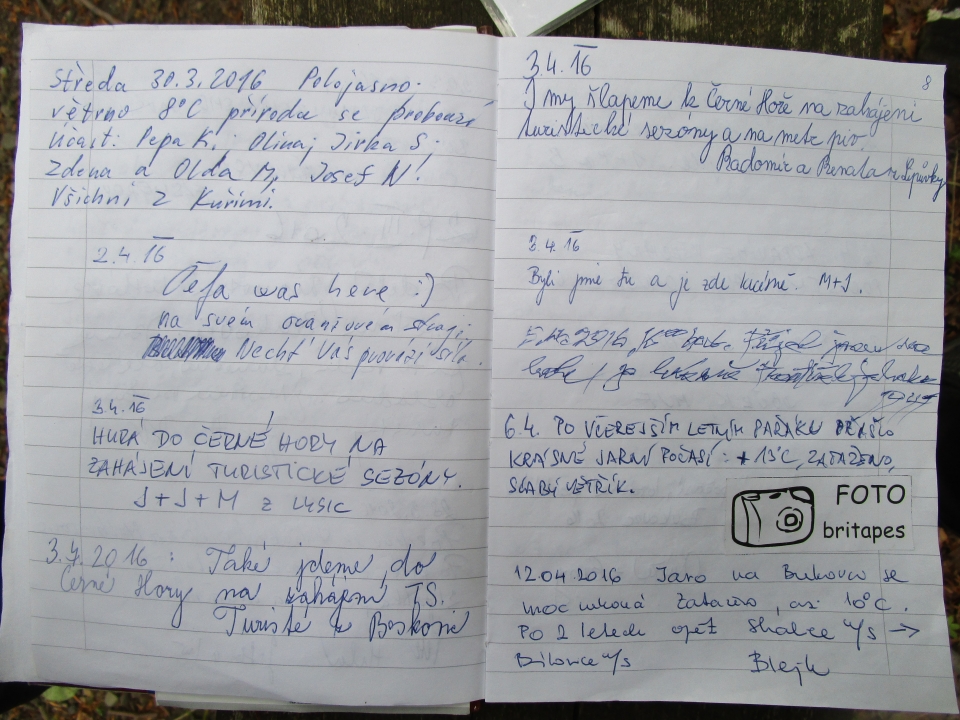 Středa 30.3.2016 Polojasno.
větrno 8°C příroda se probouzí
Účast: Pepa K, Olina, Jirka S.
Zdena a Olda M, Josef N.
Všichni z Kuřimi.
2.4.16
Péťa was here :)
na svém
Nechť Vás provází síla.
3.4.16
HURÁ DO ČERNÉ HORY NA
ZAHÁJENÍ TURISTICKÉ SEZÓNY.
J+J+M z LYSIC
3.4.2016: Také jdeme do
Černé Hory na zahájení TS.
Turisté z Boskovic
8
3.4.16
I my šlapeme k Černé Hoře na zahájení
turistické sezóny a na metr piv.
Radomír a Renata z Lipůvky
3.4.16
Byli jsme tu a je zde krásně. M+J.
6.4. PO VČEREJŠÍM LETNÍM PAŘÁKU PŘIŠLO
KRÁSNÉ JARNÍ POČASÍ: +13°C, ZATAŽENO,
SLABÝ VĚTŘÍK.
FOTO
britapes
12.04.2016 Jaro na Bukovci se
moc , asi 10°C.
Po 2 letech opět Skalice n/S →
Bílovice n/S Blejk